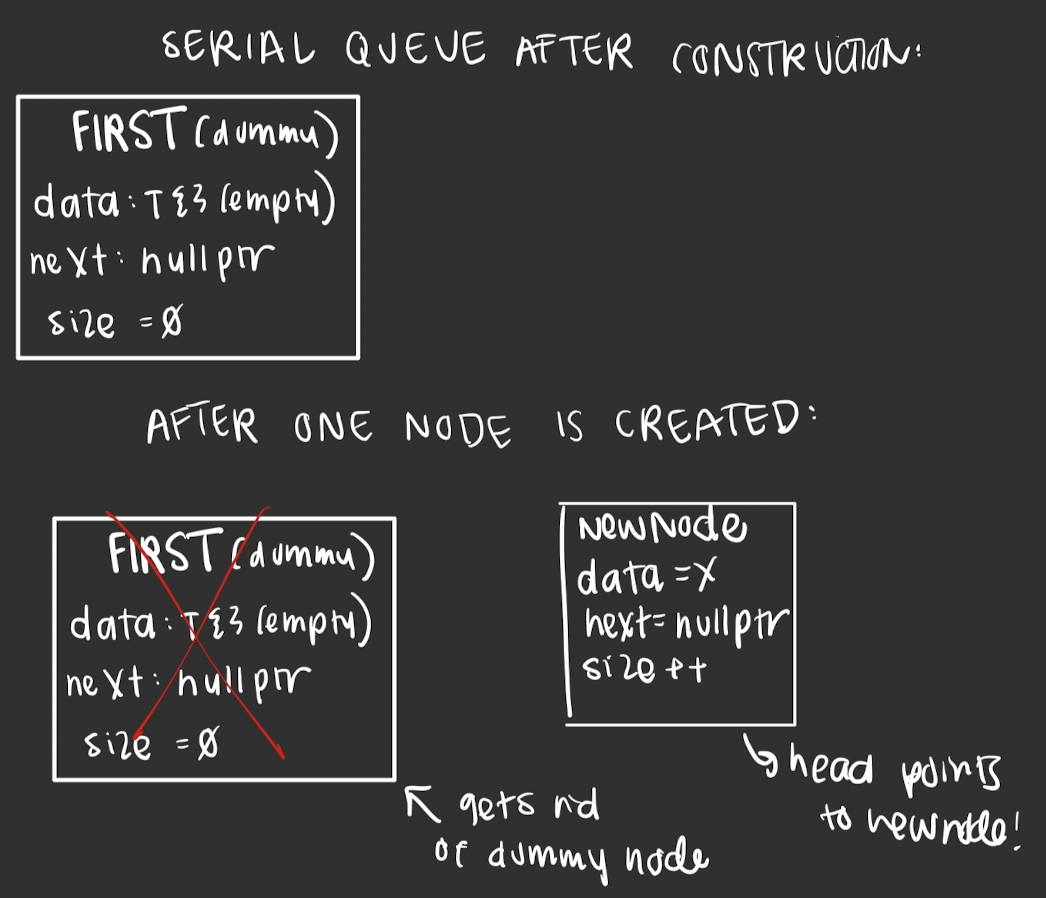 SERIAL QUEUE AFTER CONSTRUCTION:
FIRST (dummy)
data: T{} (empty)
next: nullptr
size = 0
AFTER ONE NODE IS CREATED:
FIRST (dummy)
data: T{} (empty)
next: nullptr
size = 0
gets rid
of dummy node
NewNode
data = x
next = nullptr
size ++
head points
to newnode!